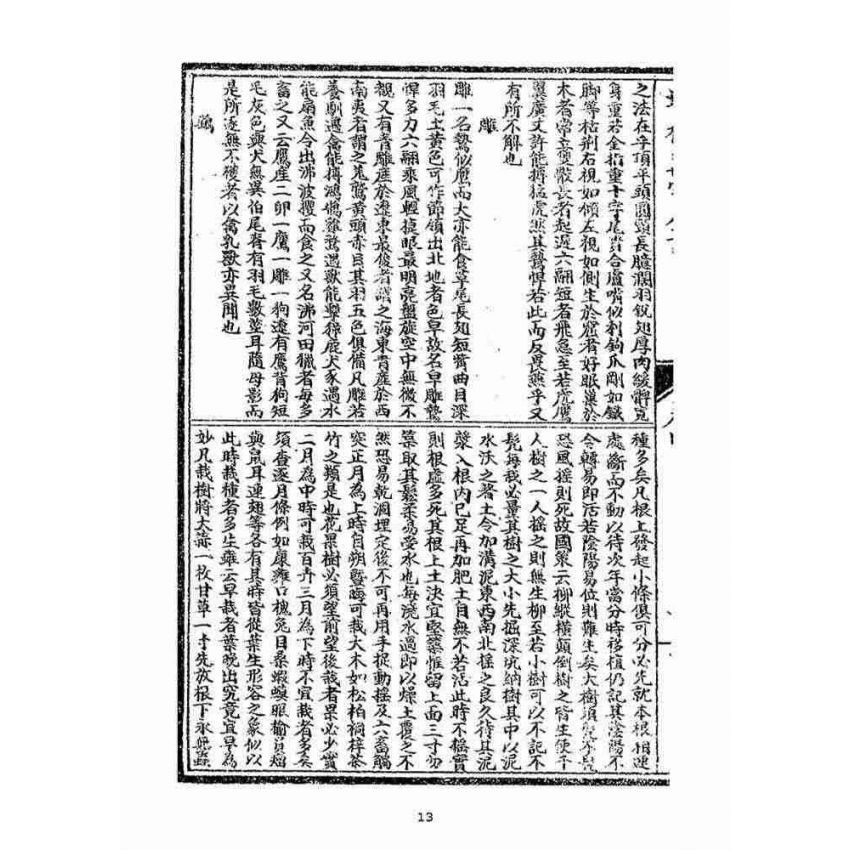 之法在乎頂平頭圓頸長臆濶羽銳翅厚肉緩髀寬
身重若金指重十字尾貴合盧嘴似利鉤爪剛如鐵
脚等枯荆右視如傾左視如側生於窟者好眠巢於
木者常立雙骹長者起遲六翮短者飛急至若虎鷹
翼廣丈許能搏猛虎然其鷙悍若此而反畏燕乎又
有所不解也
雕
雕一名鷲似鷹而大亦能食草尾長翅短觜曲目深
羽毛土黄色可作箭翎出北地者色皁故名皁雕鷙
悍多力六翮乘風輕捷眼最明亮盤旋空中無微不
覩又有青雕産於遼東最俊者謂之海東青産於西
南夷者謂之羌鷲黄頭赤目其羽五色俱備凡雕若
養馴遇禽能搏鴻鵠雞鶩遇獸能擊獐鹿犬豕遇水
能扇魚令出沸波攫而食之又名沸河田獵者每多
畜之又云鷹産二卵一鷹一雕一狗遼有鷹背狗短
毛灰色與犬無異但尾脊有羽毛數莖耳隨母影而
是所逐無不獲者以禽乳獸亦異聞也
種多矣凡根上發起小條俱可分必先就本根相連
處斷而不動以待次年當分時移植仍記其陰陽不
令轉易即活若陰陽易位則難生矣大樹須髠不髠
恐風摇則死故國策云柳縱横顛倒樹之皆生使千
人樹之一人摇之則無生柳至若小樹可以不記不
髠每栽必量其樹之大小先掘深坑納樹其中以泥
水沃之著土令加溝泥東西南北摇之良久待其泥
漿入根内已足再加肥土自無不若活此時不摇實
則根虛多死其根上土決宜堅築惟留上面三寸勿
築取其鬆柔易受水也每澆水過即以燥土覆之不
然恐易乾涸埋定後不可再用手捉動摇及六畜觸
突正月為上時自朔曁晦可栽大木如松柏桐梓茶
竹之類是也花果樹必須望前望後栽者果必少實
二月為中時可栽百卉三月為下時不宜栽者多矣
須查逐月條例如棗雞口槐兔目桑蝦蟆眼榆負瘤
與鼠耳虻翅等各有其時皆從葉生形容之象似以
此時栽種者多生雖云早栽者葉晚出究竟宜早為
妙凡栽樹將大蒜一枚甘草一寸先放根下永無蟲
13